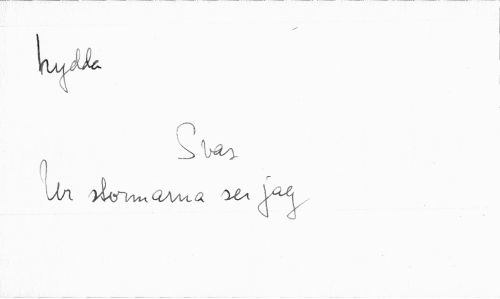 hydda
Svar
Ur stormarna ser jag